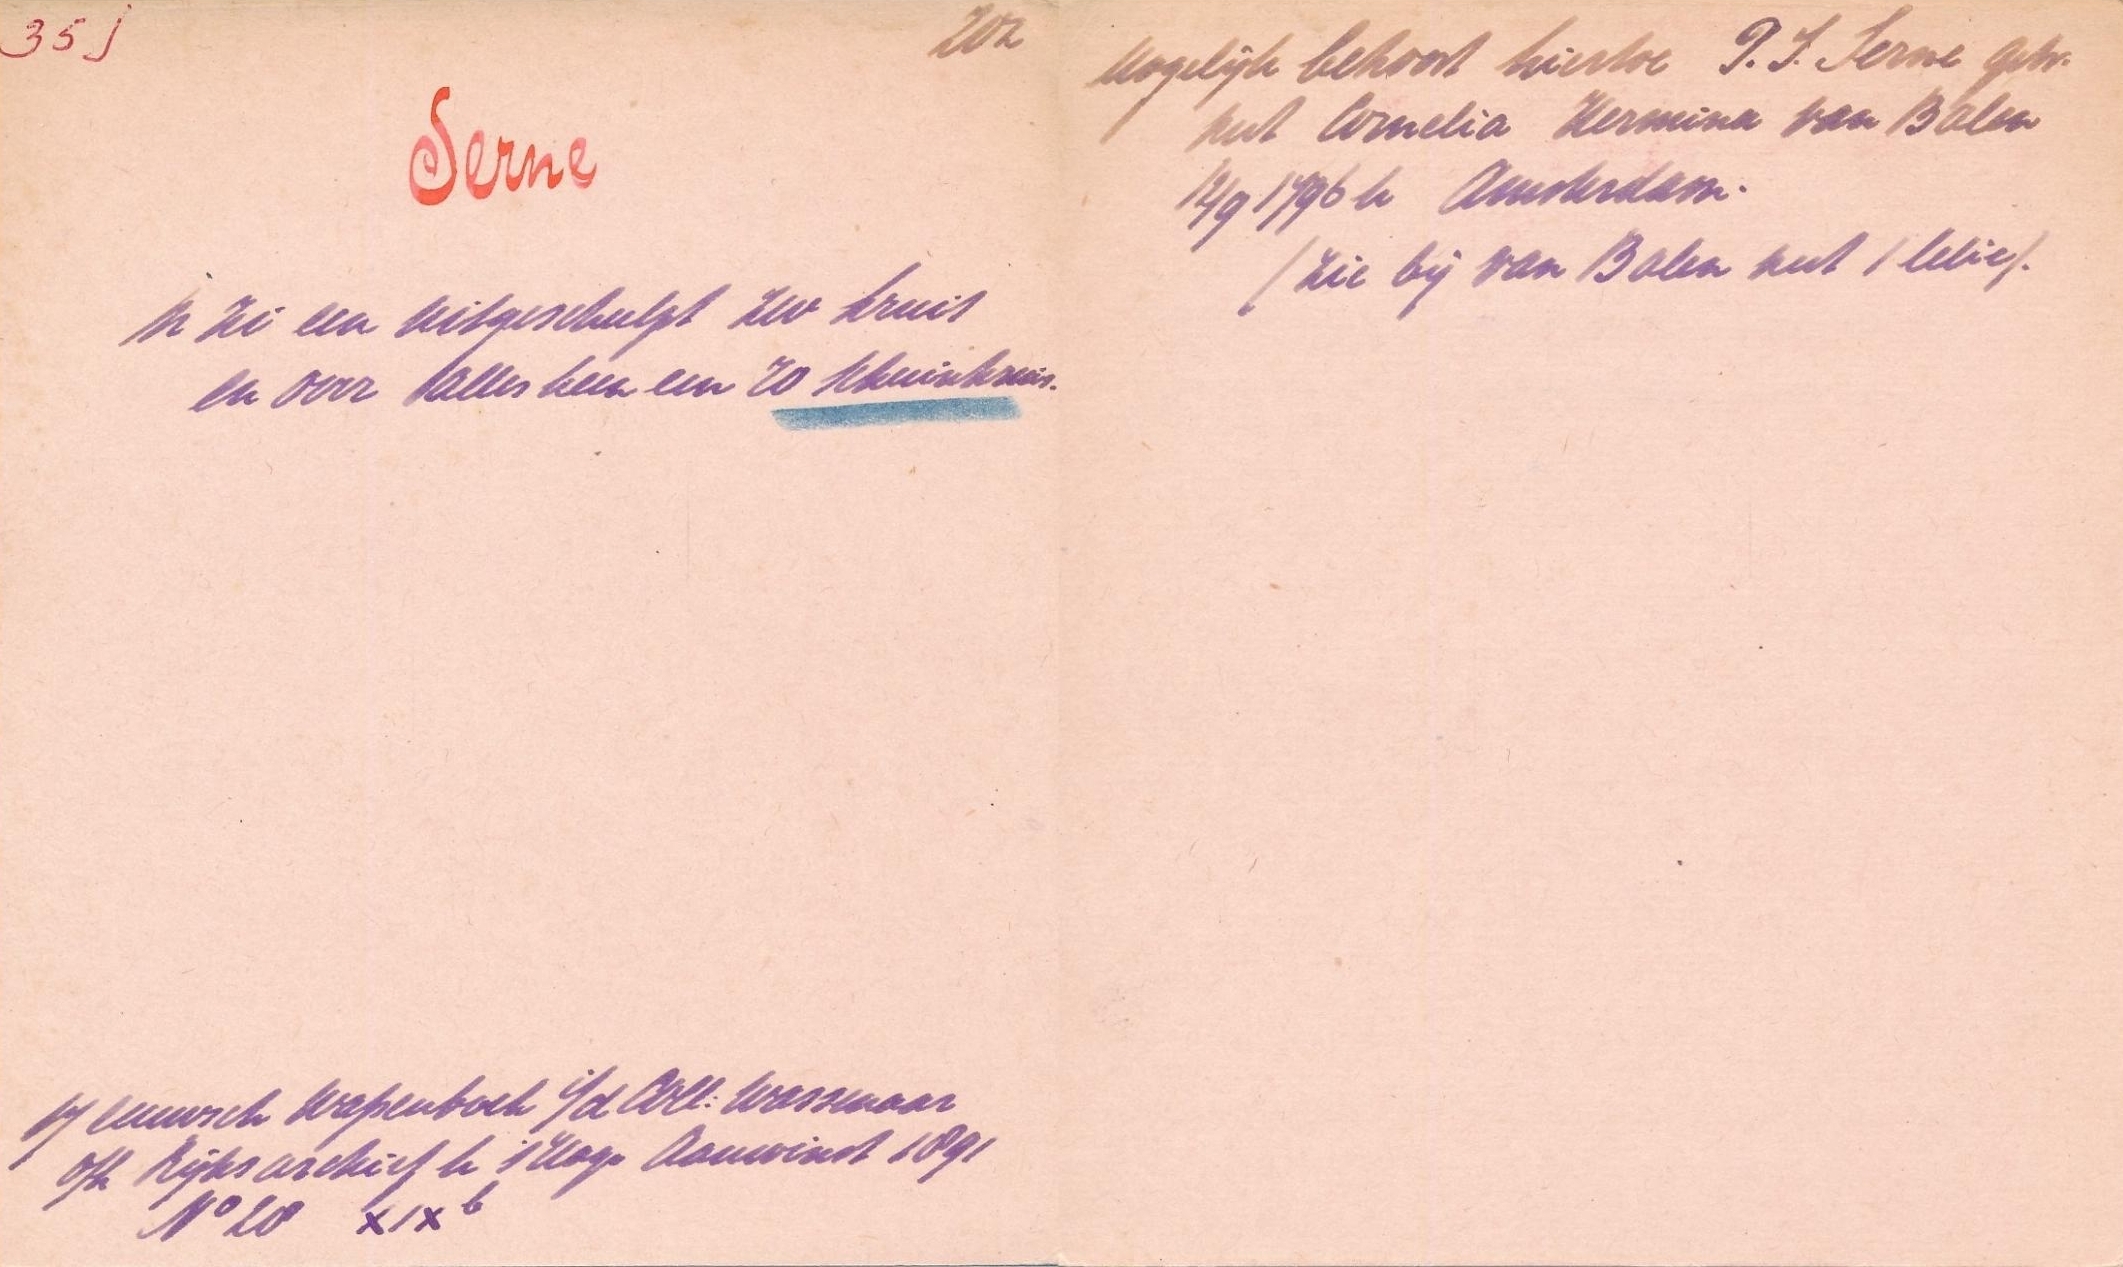 35 j
Serne
In zi een uitgeschulpt zw kruis
en over alles heen een ro schuinkruis.
eeuwsch Wapenboek i/d Coll: Wassenaar
oph Rijksarchief te 's Hage Aanwinst 1891
No 28 XIX b
Mogelijk behoort hiertoe P. J. Serne getr.
met Cornelia Hermina van Balen
1796 te Amsterdam.
(zie bij van Balen met 1 lelie).